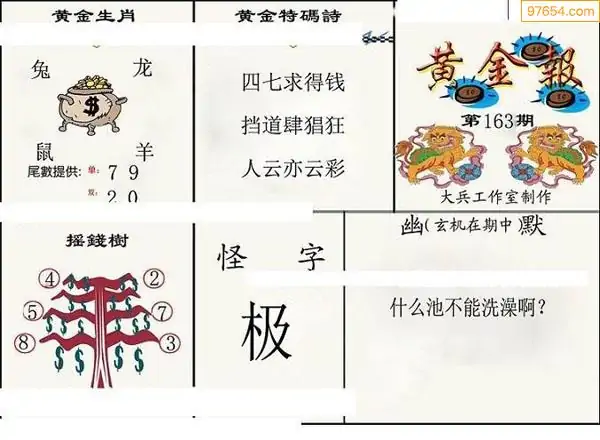 97654.com
黄金生肖
兔 龙
$
鼠 羊
尾數提供: 单: 7 9
双: 2 0
黄金特碼詩
四七求得钱
挡道肆猖狂
人云亦云彩
黄金報
10
10
10
第163期
大兵工作室制作
摇錢樹
④ ②
⑤ ⑦
⑧ ③
$ $ $ $
$ $ $ $
怪 字
极
幽(玄机在期中)默
什么池不能洗澡啊?